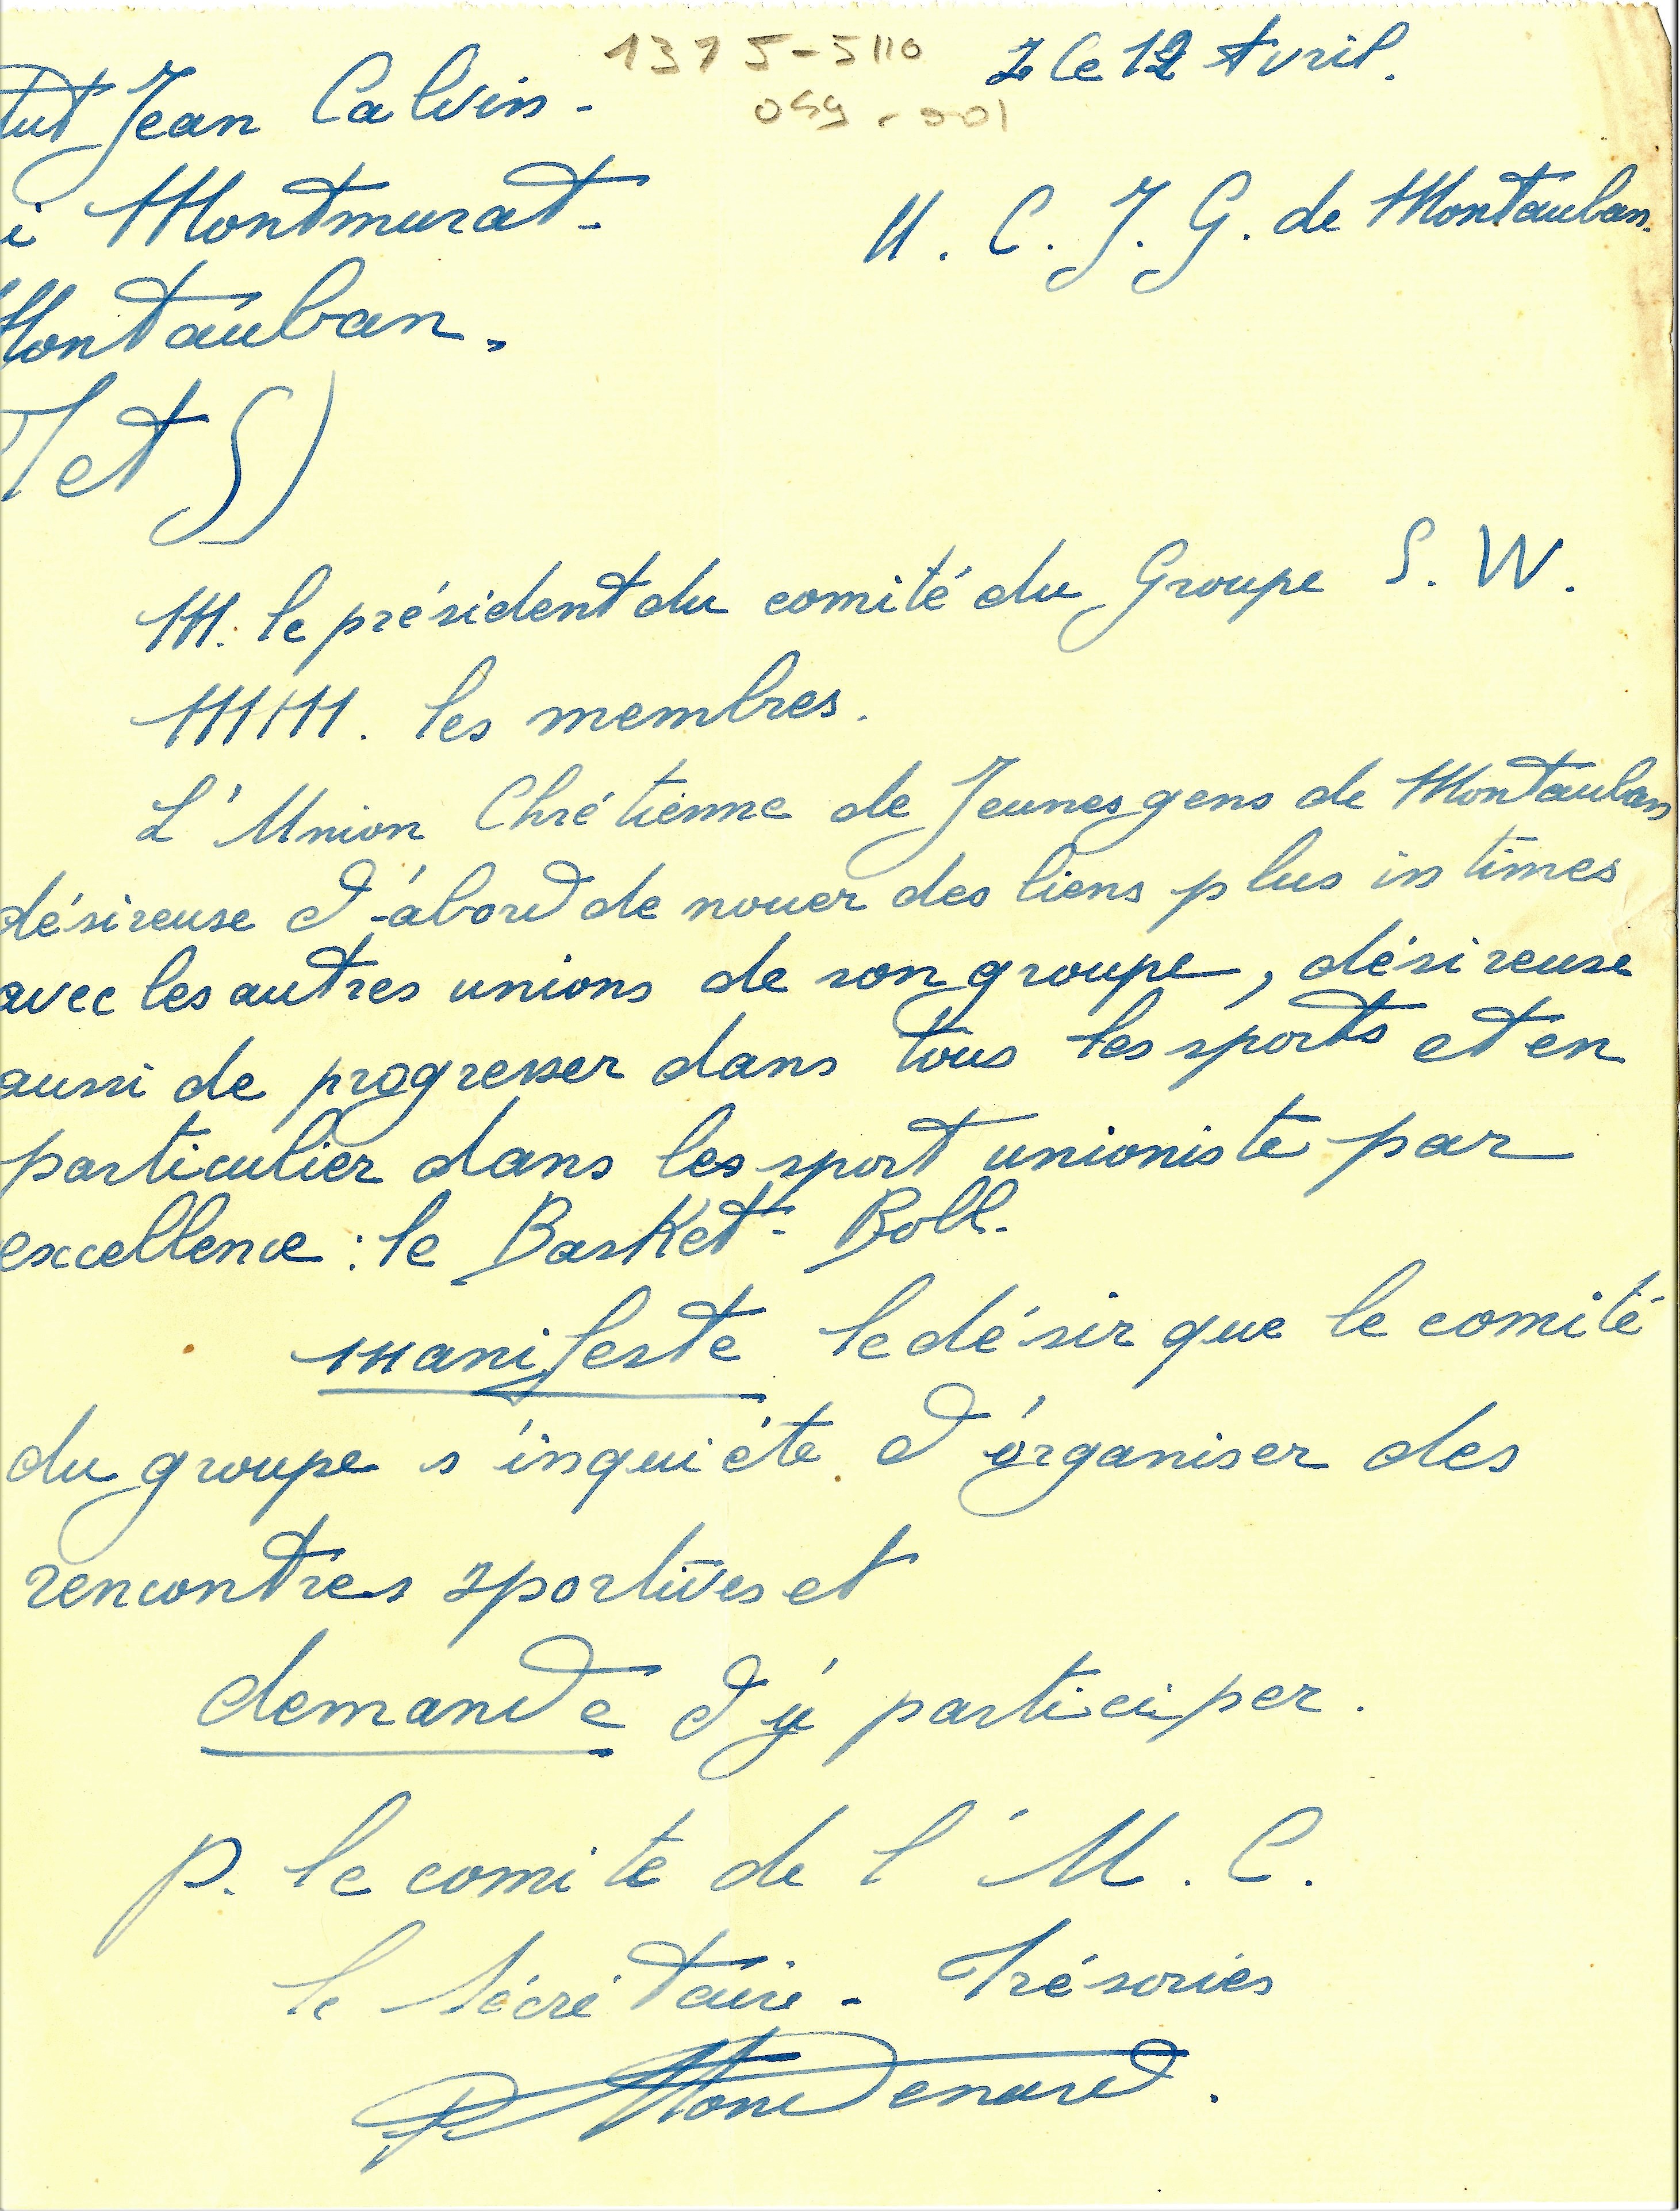 1375-5110
le 12 Avril.
059-001
tut Jean Calvin-
U. C. J. G. de Montauban.
i Montmurat-
Montauban.
et S)
M. le président du comité du Groupe S. W.
MM. les membres.
L'Union Chrétienne de Jeunes gens de Montauban
désireuse d'abord de nouer des liens plus intimes
avec les autres unions de son groupe, désireuse
aussi de progresser dans tous les sports et en
particulier dans les sport unioniste par
excellence : le Basket-Boll.
manifeste le désir que le comité
du groupe s'inquiéte d'organiser des
rencontres sportives et
demande d'y participer.
P. le comité de l'U. C.
le Sécrétaire - Trésorier
Mondenard.